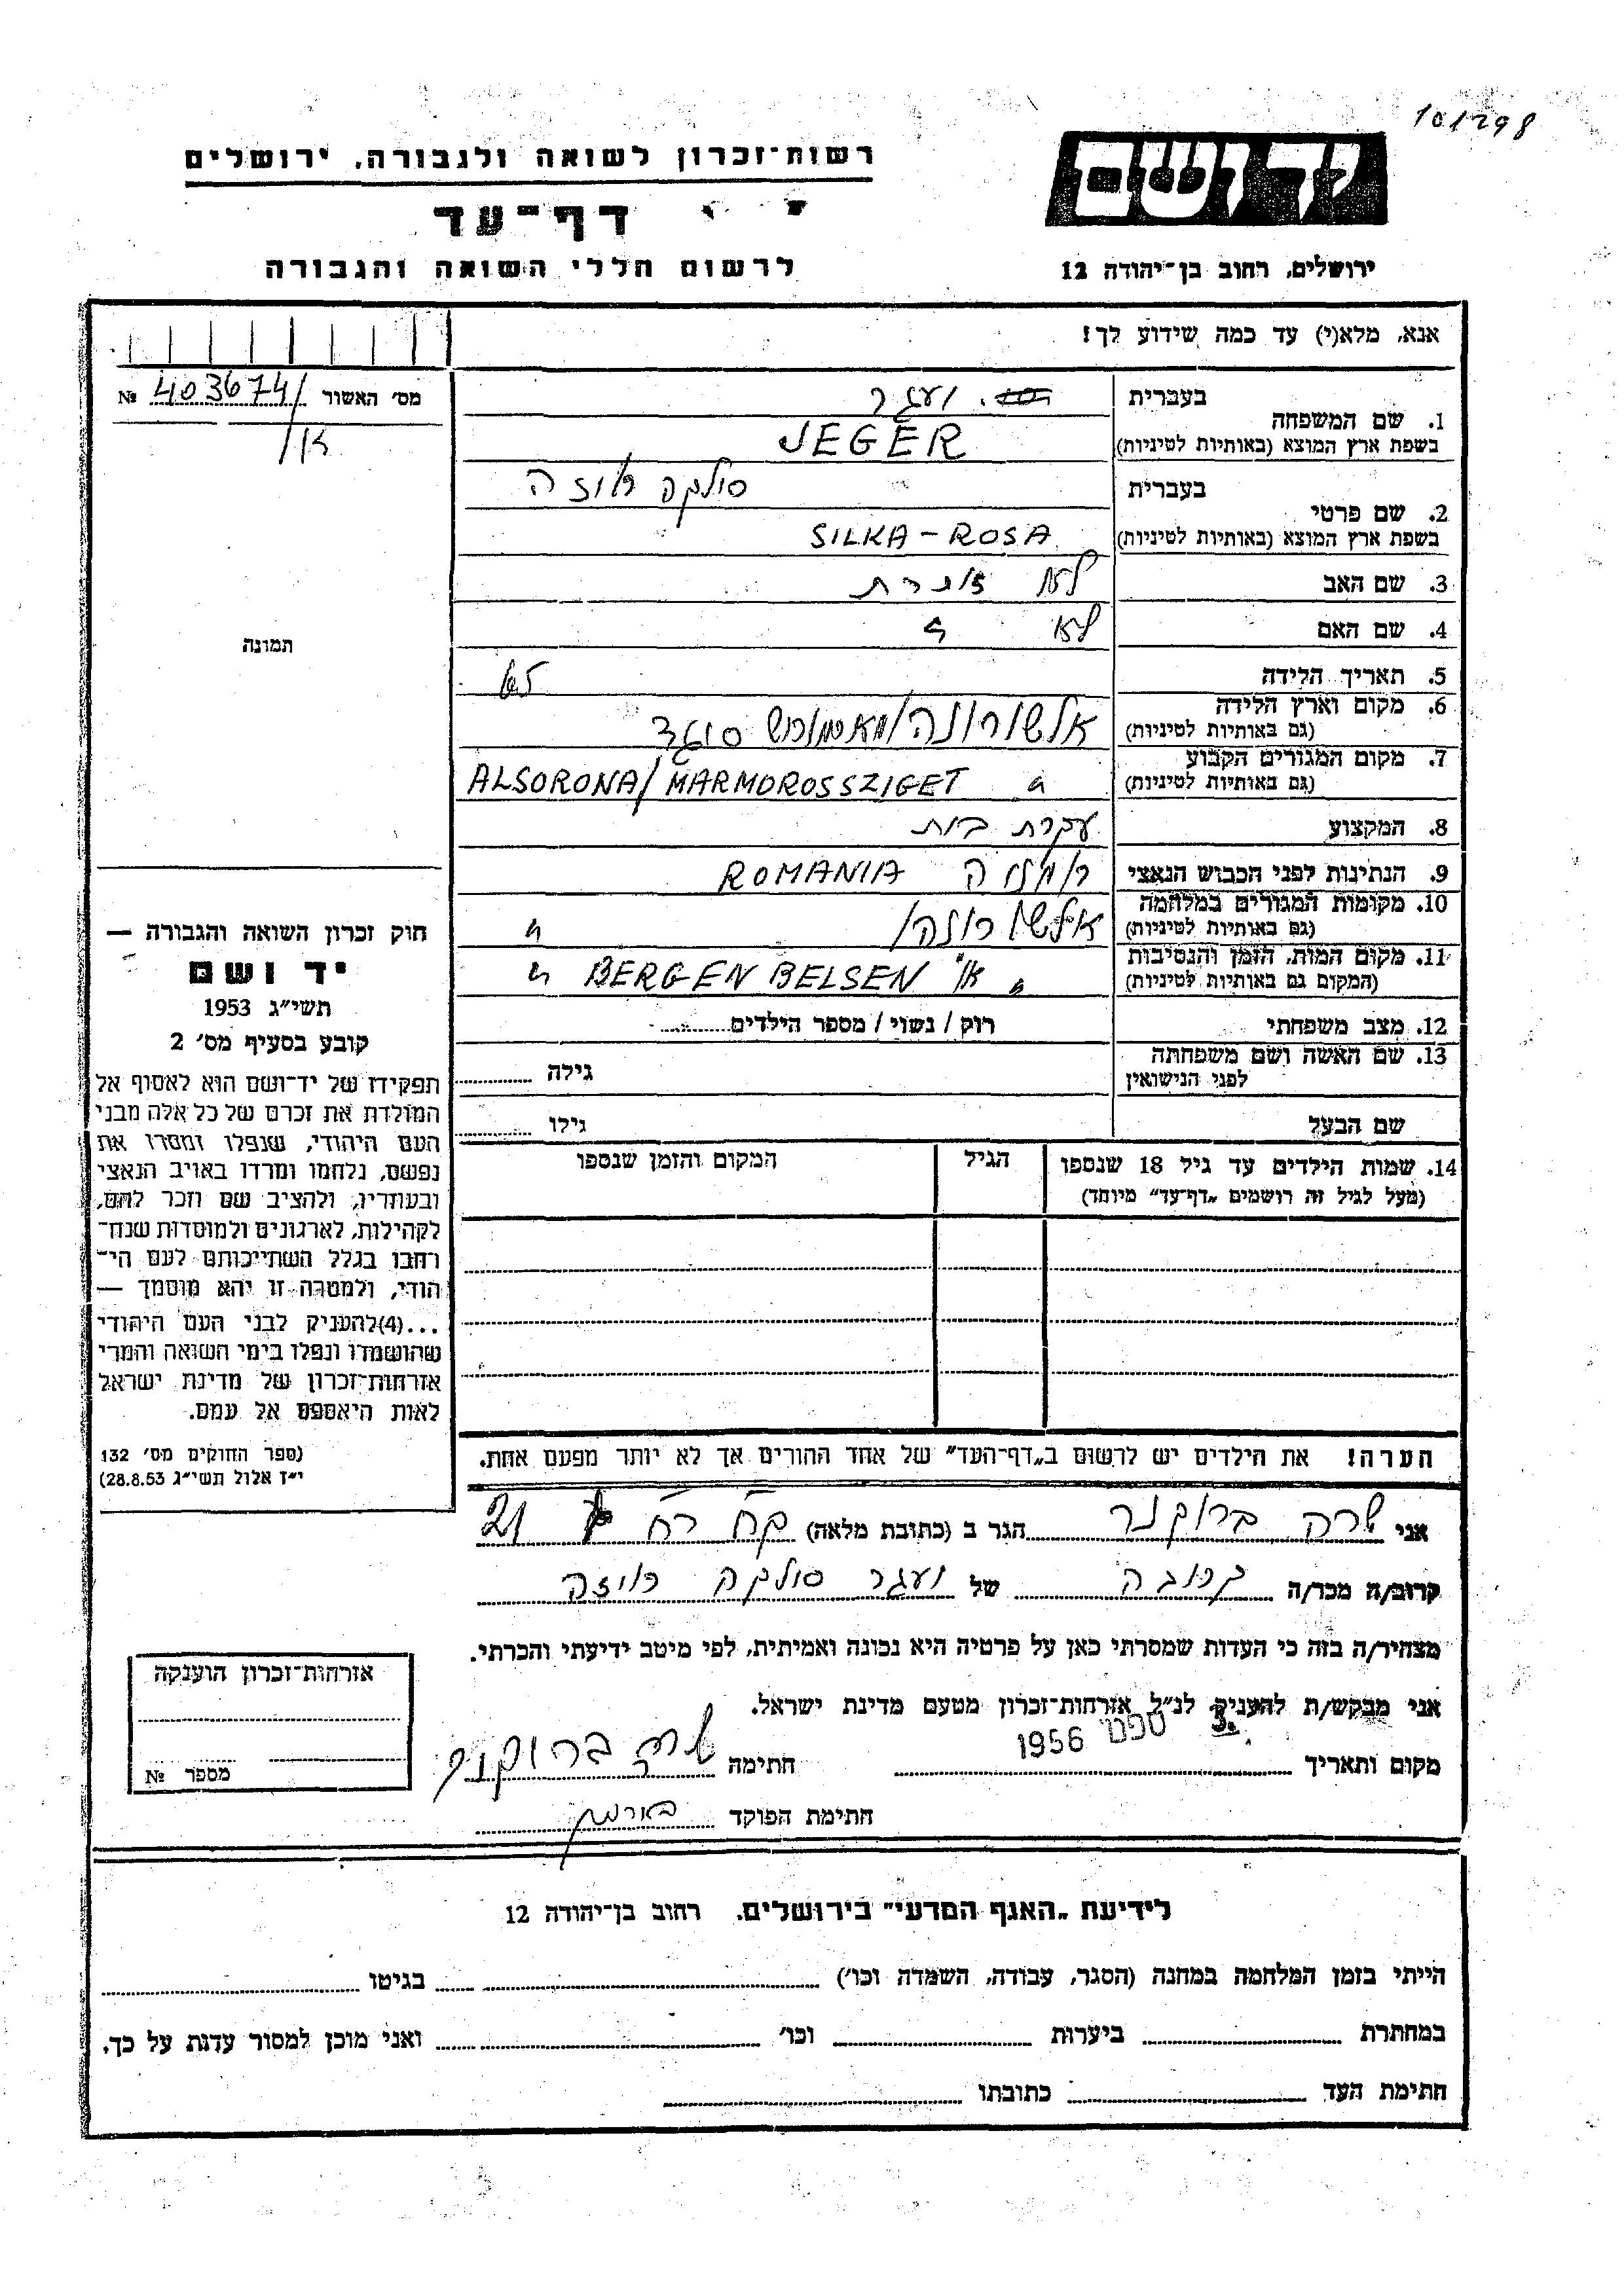 101298
יד ושם
רשות־זכרון לשואה ולגבורה, ירושלים
דף־עד
ירושלים, רחוב בן־יהודה 12
לרשום חללי השואה והגבורה
אנא, מלא(י) עד כמה שידוע לך!
מס' האשור № 403674/
1. שם המשפחה
בעברית יעגר
בשפת ארץ המוצא (באותיות לטיניות) JEGER
2. שם פרטי
בעברית סילקה רוזה
בשפת ארץ המוצא (באותיות לטיניות) SILKA - ROSA
3. שם האב לא זוכרת
4. שם האם לא "
5. תאריך הלידה
6. מקום וארץ הלידה
(גם באותיות לטיניות) אלשורונה/
7. מקום המגורים הקבוע
(גם באותיות לטיניות) " ALSORONA/MARMOROSSZIGET
8. המקצוע עקרת בית
9. הנתינות לפני הכבוש הנאצי רומניה ROMANIA
10. מקומות המגורים במלחמה
(גם באותיות לטיניות) אלשורונה/ "
11. מקום המות, הזמן והנסיבות
(המקום גם באותיות לטיניות) " או BERGEN BELSEN "
12. מצב משפחתי רוק / נשוי / מספר הילדים
13. שם האשה ושם משפחתה
לפני הנישואין גילה
שם הבעל גילו
14. שמות הילדים עד גיל 18 שנספו
(מעל לגיל זה רושמים „דף־עד" מיוחד)
הגיל
המקום והזמן שנספו
הערה! את הילדים יש לרשום ב„דף־העד" של אחד ההורים אך לא יותר מפעם אחת.
תמונה
חוק זכרון השואה והגבורה —
יד ושם
תשי"ג 1953
קובע בסעיף מס' 2
תפקידו של יד־ושם הוא לאסוף אל
המולדת את זכרם של כל אלה מבני
העם היהודי, שנפלו ומסרו את
נפשם, נלחמו ומרדו באויב הנאצי
ובעוזריו, ולהציב שם וזכר להם,
לקהילות, לארגונים ולמוסדות שנח־
רבו בגלל השתייכותם לעם הי־
הודי, ולמטרה זו יהא מוסמך —
...(4)להעניק לבני העם היהודי
שהושמדו ונפלו בימי השואה והמרי
אזרחות־זכרון של מדינת ישראל
לאות היאספם אל עמם.
(ספר החוקים מס' 132
י"ז אלול תשי"ג 28.8.53)
אני שרה ברוקנר הגר ב (כתובת מלאה) 21
קרוב/ה מכר/ה קרובה של יעגר סילקה רוזה
מצהיר/ה בזה כי העדות שמסרתי כאן על פרטיה היא נכונה ואמיתית, לפי מיטב ידיעתי והכרתי.
אני מבקש/ת להעניק לנ"ל אזרחות־זכרון מטעם מדינת ישראל.
מקום ותאריך 3. ספט 1956 חתימה שרה ברוקנר
חתימת הפוקד
אזרחות־זכרון הוענקה
מספר №
לידיעת „האגף המדעי" בירושלים, רחוב בן־יהודה 12
הייתי בזמן המלחמה במחנה (הסגר, עבודה, השמדה וכו') בגיטו
במחתרת ביערות וכו' ואני מוכן למסור עדות על כך.
חתימת העד כתובתו